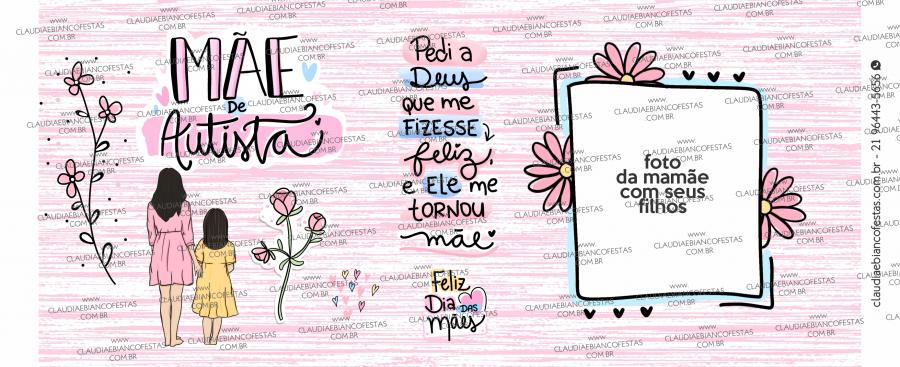 MÃE
DE
Autista
Pedi a
Deus
que me
FIZESSE
feliz,
e ELE me
tORNOU
mãe
Feliz
Dia DAS
mães
foto
da mamãe
com seus
filhos
claudiaebiancofestas.com.br - 21 96443-5656
WWW.
CLAUDIAEBIANCOFESTAS
COM.BR